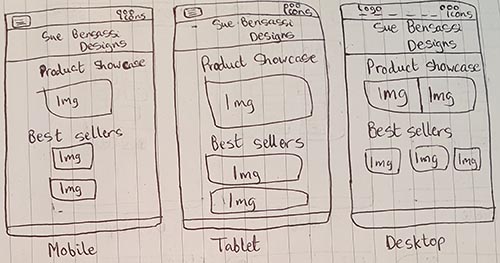 icons
Sue Bensassi
Designs
Product Showcase
Img
Best sellers
Img
Img
Mobile
icons
Sue Bensassi
Designs
Product Showcase
Img
Best sellers
Img
Img
Tablet
Logo
icons
Sue Bensassi
Designs
Product Showcase
Img Img
Best sellers
Img Img Img
Desktop